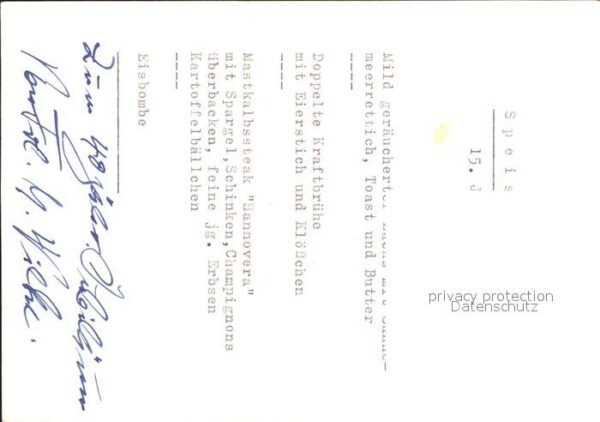 S p e i s
15. J
Mild geräucherter Lachs mit Sahne-
meerrettich, Toast und Butter
----
Doppelte Kraftbrühe
mit Eierstich und Klößchen
----
Mastkalbssteak "Hannovera"
mit Spargel, Schinken, Champignons
überbacken, feine jg. Erbsen
Kartoffelbällchen
----
Eisbombe
Zum 40 jähr. Jubiläum
privacy protection
Datenschutz